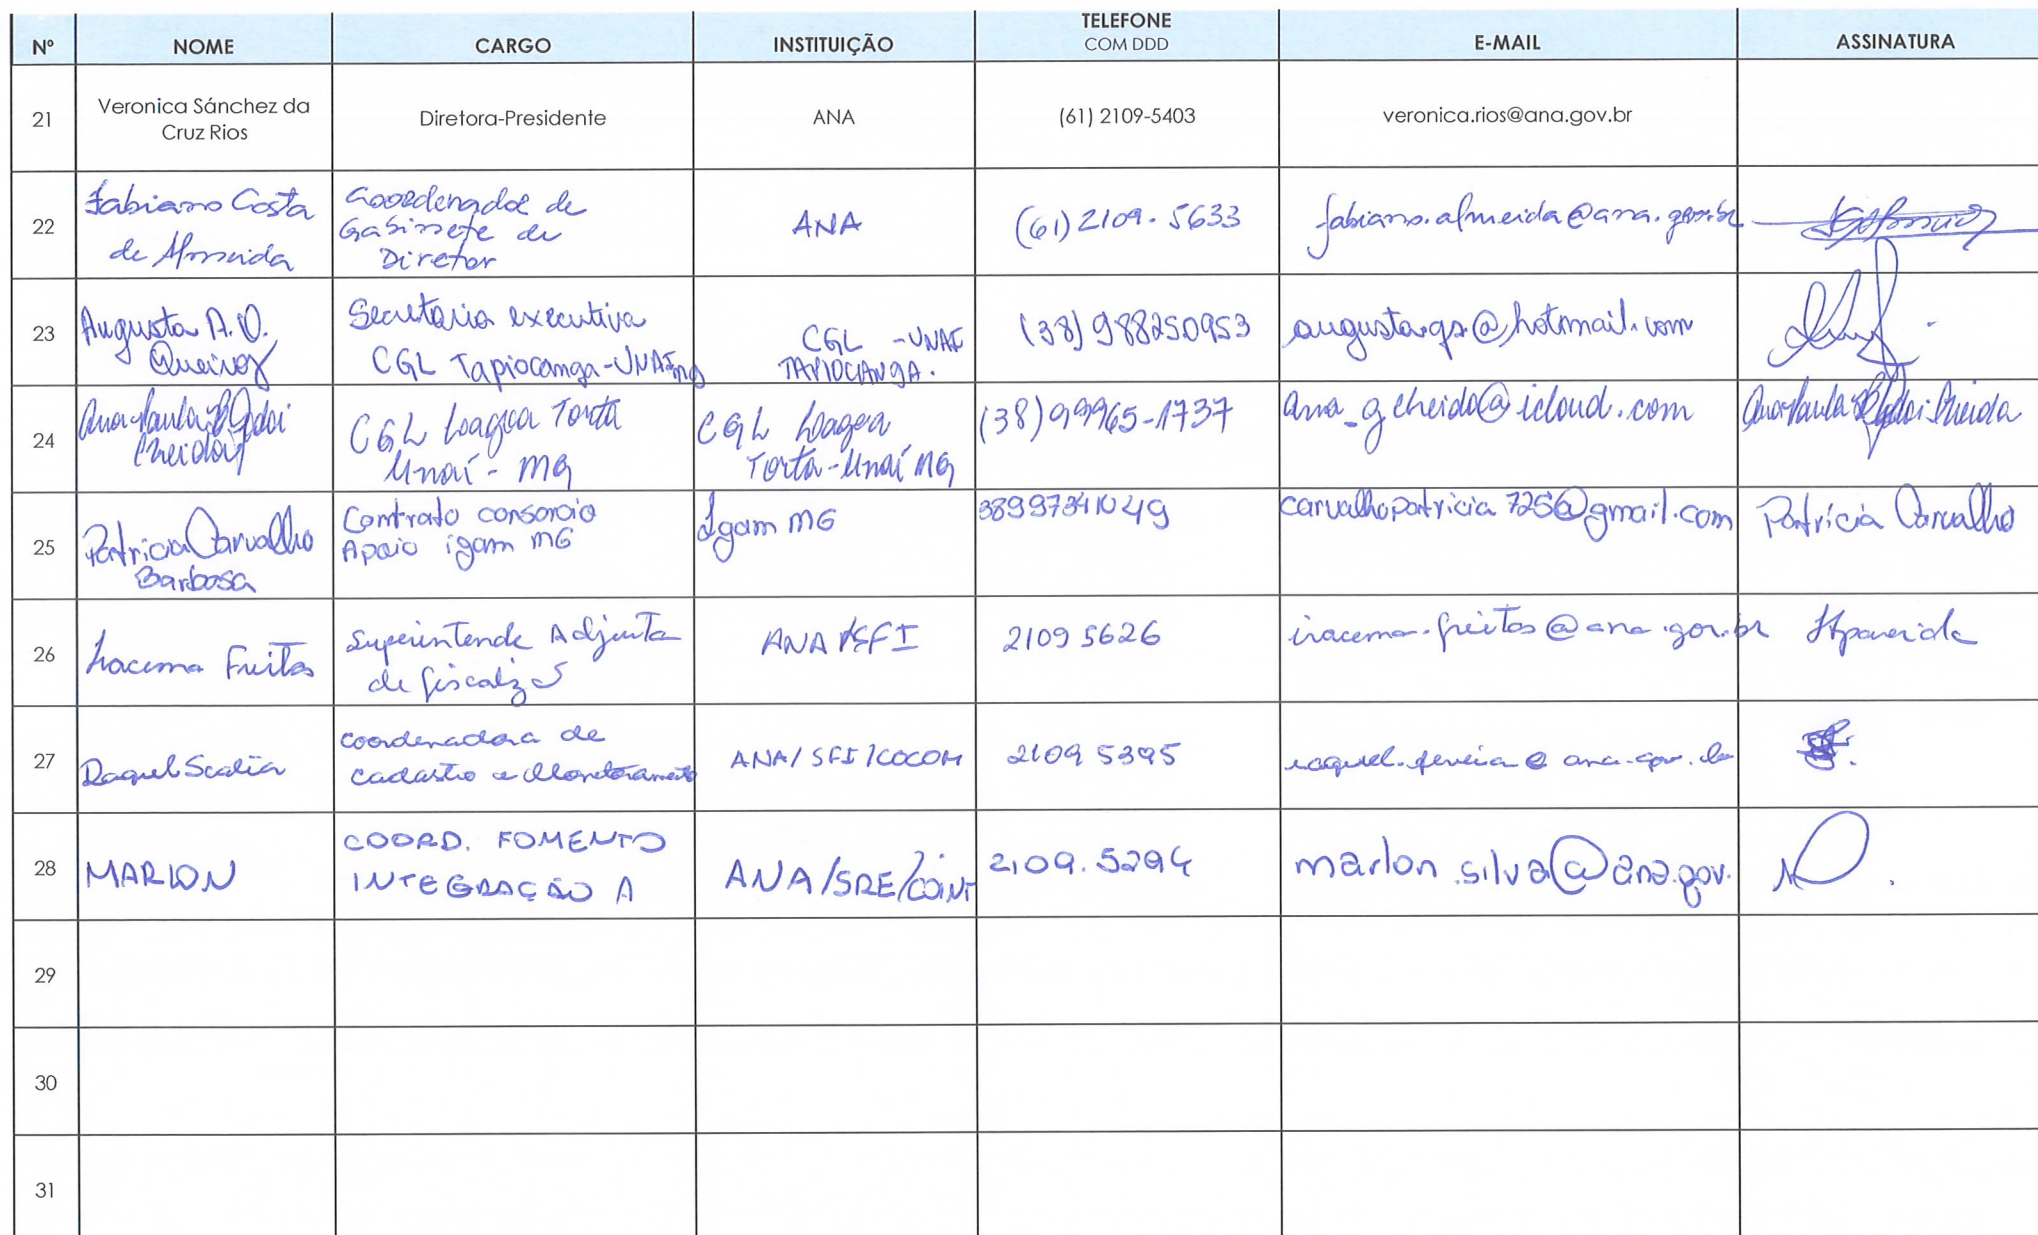 Nº NOME CARGO INSTITUIÇÃO TELEFONE COM DDD E-MAIL ASSINATURA
21 Veronica Sánchez da Cruz Rios Diretora-Presidente ANA (61) 2109-5403 veronica.rios@ana.gov.br
22 Fabiano Costa de Almeida Coordenador de Gabinete de Diretor ANA (61) 2109-5633 fabiano.almeida@ana.gov.br
23 Augusta A. O. Queiroz Secretaria executiva CGL Tapiocanga-UNAÍ MG CGL -UNAÍ TAPIOCANGA. (38) 988250953 @hotmail.com
24 Ana Paula Godoi Cheidoi CGL Lagoa Torta Unaí - MG CGL Lagoa Torta-Unaí MG (38) 99965-1737 ana_gcheido@icloud.com Ana Paula
25 Patricia Carvalho Barbosa Contrato consorcio Apoio igam MG Igam MG 38997341049 carvalhopatricia725@gmail.com Patrícia Carvalho
26 Iracema Freitas Superintende Adjunta de ANA/SFI 2109 5626 iracema.freitas@ana.gov.br
27 Raquel Scalia coordenadora de cadastro e Monitoramento ANA/SFI/COCOM 2109 5395
28 MARLON COORD. FOMENTO INTEGRAÇÃO A ANA/SRE/COINT 2109.5294 marlon.silva@ana.gov.
29
30
31